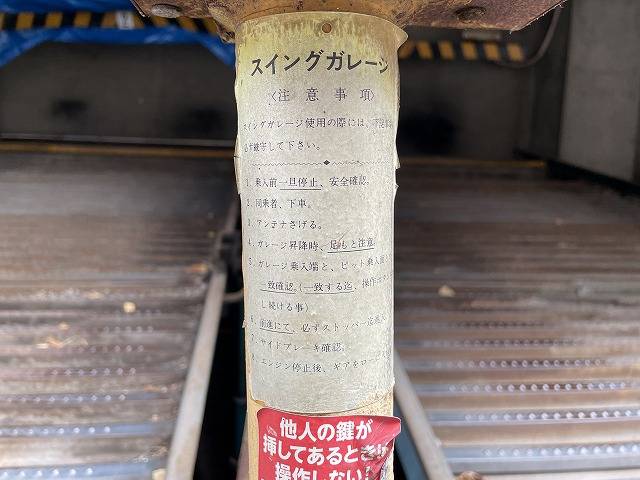 スイングガレージ
〈注意事項〉
スイングガレージ使用の際には、下記事
必ず厳守して下さい。
1. 乗入前一旦停止、安全確認。
2. 同乗者、下車。
3. アンテナさげる。
4. ガレージ昇降時、足もと注意
5. ガレージ乗入端と、ピット乗入
一致確認。(一致する迄、操作
し続ける事)
6. 前進にて、必ずストッパー迄
7. サイドブレーキ確認。
8. エンジン停止後、ギアをロー
他人の鍵が
挿してあるときは
操作しない